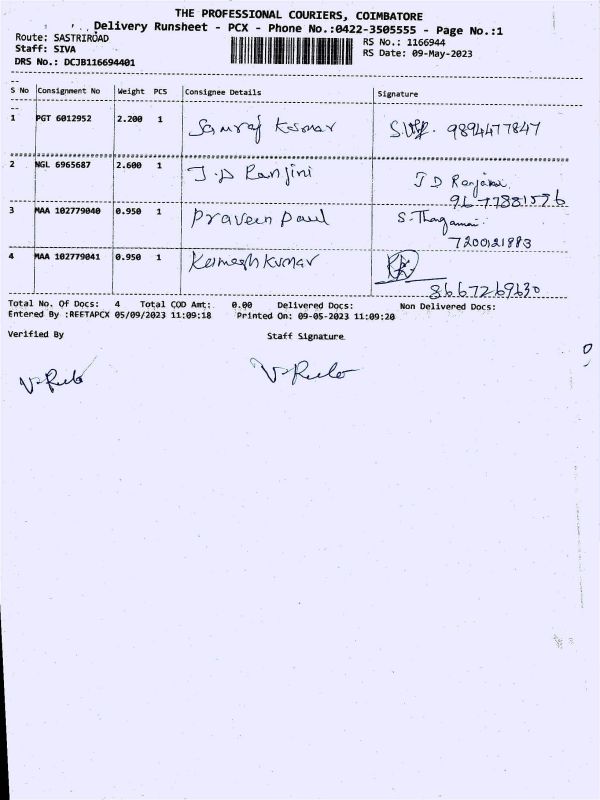 THE PROFESSIONAL COURIERS, COIMBATORE
Delivery Runsheet - PCX - Phone No.:0422-3505555 - Page No.:1
Route: SASTRIROAD
Staff: SIVA
DRS No.: DCJB116694401
RS No.: 1166944
RS Date: 09-May-2023
S No Consignment No Weight PCS Consignee Details Signature
1 PGT 6012952 2.200 1 Sauraj Kumar 9894477847
2 NGL 6965687 2.600 1 J.D Ranjini J D Ranjini
9677881576
3 MAA 102779040 0.950 1 Praveen Paul S. Thangamani
7200121983
4 MAA 102779041 0.950 1 Kamesh Kumar
8667269630
Total No. Of Docs: 4 Total COD Amt: 0.00 Delivered Docs: Non Delivered Docs:
Entered By :REETAPCX 05/09/2023 11:09:18 Printed On: 09-05-2023 11:09:20
Verified By Staff Signature